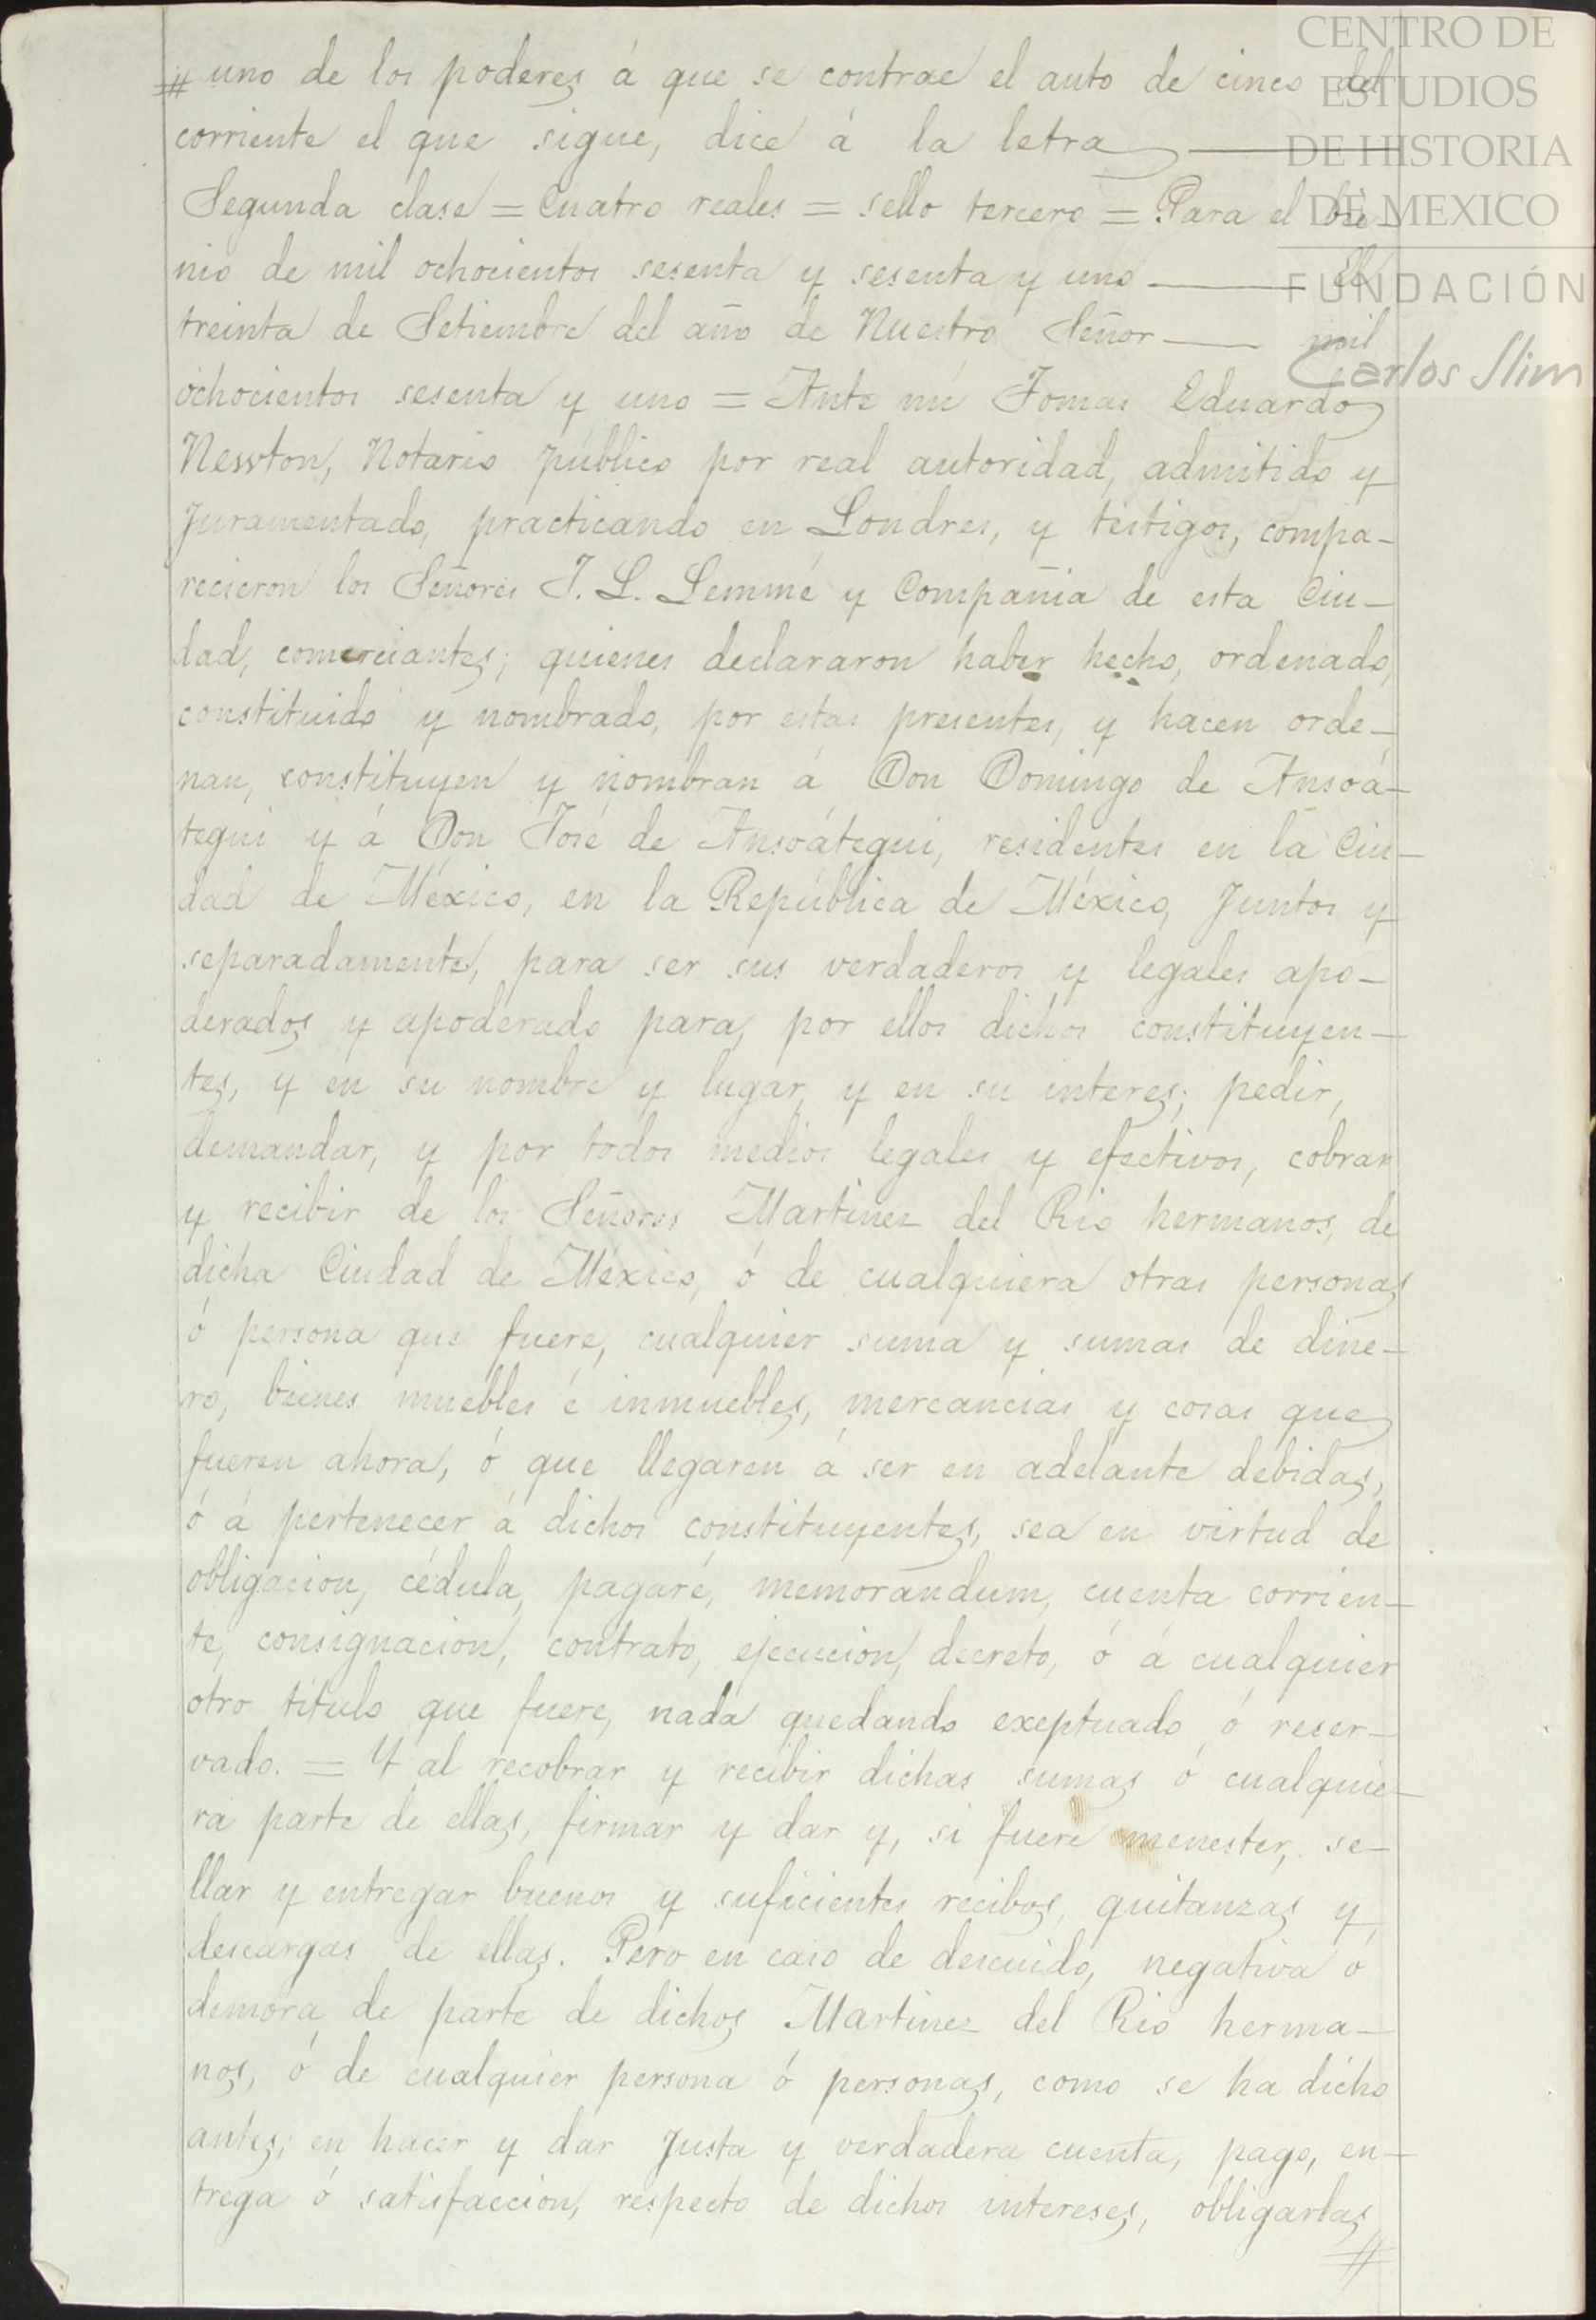 CENTRO DE
ESTUDIOS
DE HISTORIA
DE MEXICO
FUNDACIÓN
Carlos Slim
# uno de los poderes á que se contrae el auto de cinco del
corriente el que sigue, dice á la letra
Segunda clase = Cuatro reales = sello tercero = Para el bie-
nio de mil ochocientos sesenta y sesenta y uno — El
treinta de Setiembre del año de Nuestro Señor — mil
ochocientos sesenta y uno = Ante mí Tomas Eduardo
Newton, Notario público por real autoridad, admitido y
Juramentado, practicando en Londres, y testigos, compa-
recieron los Señores J. L. Lemmé y Compañia de esta Ciu-
dad, comerciantes; quienes declararon haber hecho, ordenado,
constituido y nombrado, por estas presentes, y hacen orde-
nan, constituyen y nombran á Don Domingo de Ansoá-
tegui y á Don José de Ansoátegui, residentes en la Ciu-
dad de México, en la República de México, Juntos y
separadamente, para ser sus verdaderos y legales apo-
derados y apoderado para, por ellos dichos constituyen-
tes, y en su nombre y lugar, y en su interes; pedir,
demandar, y por todos medios legales y efectivos, cobrar
y recibir de los Señores Martinez del Rio hermanos, de
dicha Ciudad de México, ó de cualquiera otras personas
ó persona que fuere, cualquier suma y sumas de dine-
ro, bienes muebles é inmuebles, mercancias y cosas que
fueren ahora, ó que llegaren á ser en adelante debidas,
ó á pertenecer á dichos constituyentes, sea en virtud de
obligacion, cédula, pagaré, memorandum, cuenta corrien-
te, consignacion, contrato, ejecucion, decreto, ó á cualquier
otro titulo que fuere, nada quedando exeptuado ó reser-
vado. = Y al recobrar y recibir dichas sumas ó cualquie-
ra parte de ellas, firmar y dar y, si fuere menester, se-
llar y entregar buenos y suficientes recibos, quitanzas y
descargas de ellas. Pero en caso de descuido, negativa ó
demora de parte de dichos Martinez del Rio herma-
nos, ó de cualquier persona ó personas, como se ha dicho
antes; en hacer y dar Justa y verdadera cuenta, pago, en-
trega ó satisfaccion, respecto de dichos intereses, obligarlas
#